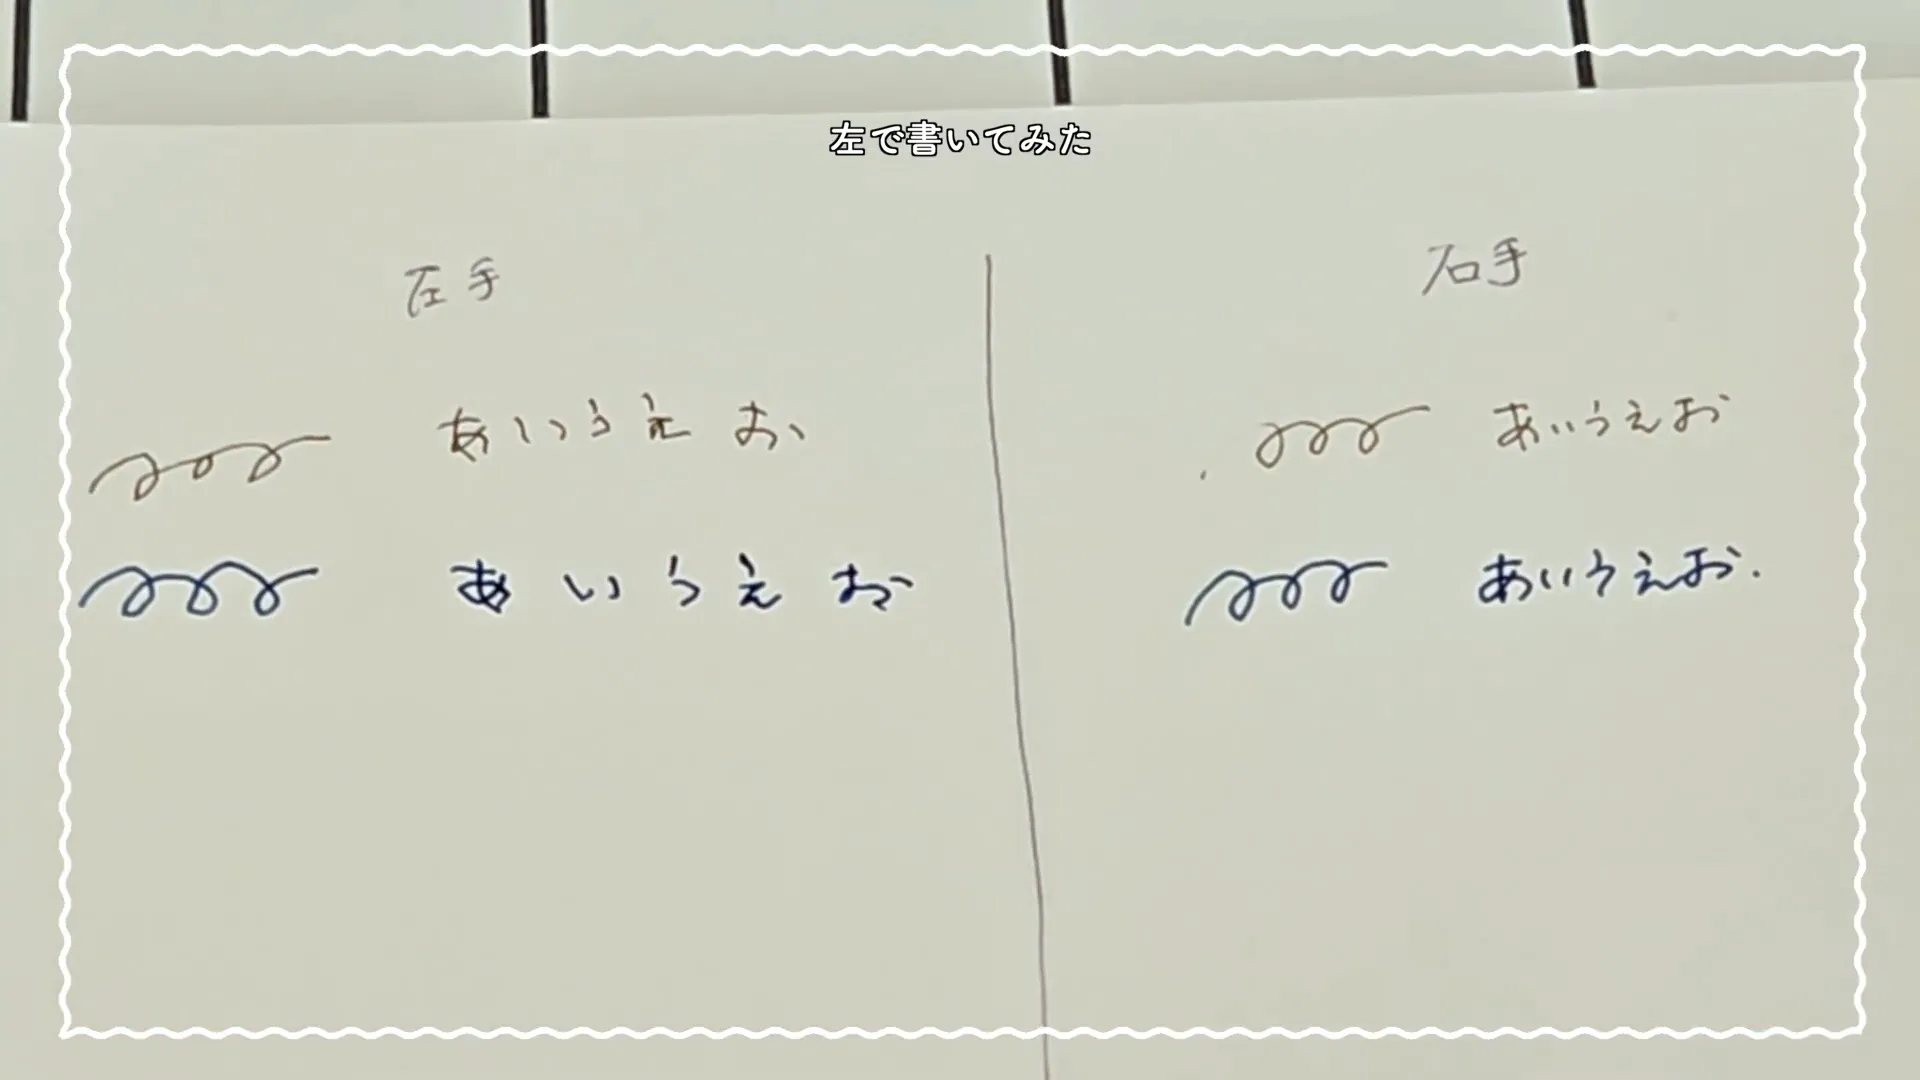 左で書いてみた
左手
右手
あいうえお
あいうえお
あいうえお
あいうえお